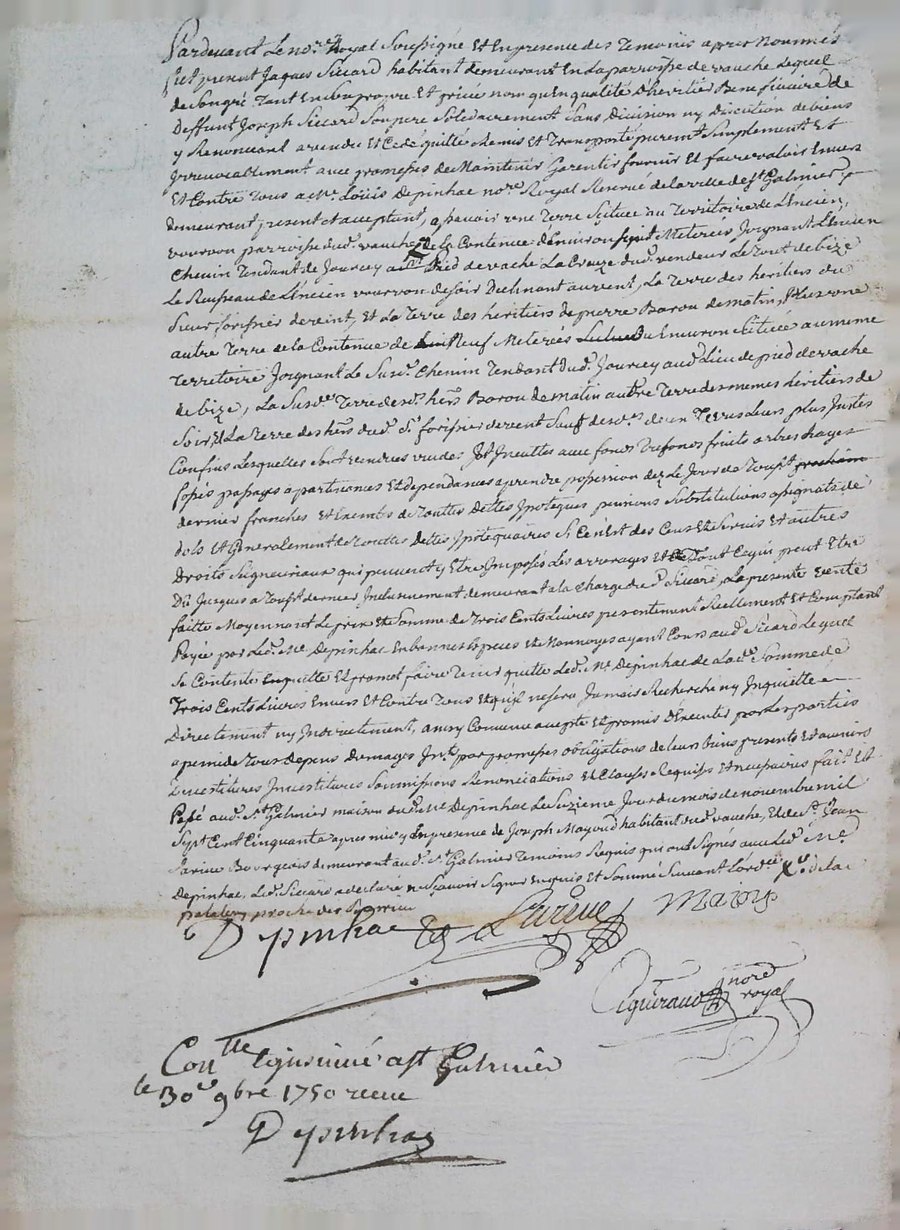 Pardevant Le no.re Royal Soussigné Et En presence des Temoins apres Nommés
fut present Jaques Siccard habitant demeurant En La parroisse de vauche Lequel
de Son gré Tant En Son propre Et privé nom qu En qualité D heritier Beneficiaire de
Deffunt Joseph Siccard Son pere Solidairement Sans Division ny Discution de biens
y Renoncant a vendu Et Cedé quitté Remis Et Transporté purement Simplement Et
Irrevocablement avec promesses de Maintenir Garentir fournir Et faire valoir Envers
Et Contre Tous a Me. Louis Depinhac no.re Royal Reservé de la ville de St Galmier y
demeurant present et acceptant, a scavoir une Terre Scituée au Territoire de L'Encien,
vourvon parroisse dud. vauche de la Contenue d Environ Sept Meterées Joignant L'Encien
Chemin Tendant de Jourcey au pied de vache La Creuze dud. vendeur Le Tout de bize
Le Ruisseau de L'Encien vourvon de soir Declinant au vent, La Terre des heritiers du
Sieur forissier de vent, Et La Terre des héritiers de pierre Barou de matin, Plus une
autre Terre de la Contenue de Neuf Meterées Environ Scituée au meme
Territoire Joignant Le Susd. Chemin Tendant dud. Jourcey aud. Lieu de pied de vache
de bize, La Susd.e Terre desd. hers Barou de matin autre Terre des memes héritiers de
Soir, Et La Terre des hers dud. Sr forissier de vent Sauf desd.es deux Terres Leurs plus Justes
Confins Lesquelles Sont vendues vuides Et Incultes avec fonds Trefonds fruits arbres hayes
fossés passages apartenances Et dependances a prendre possession dez Le Jour de Toust
dernier franches Et Exemtes de Toutes Dettes Ypoteques pensions Substitutions assignats de
dots Et Generalement de Touttes dettes ypotequaires Si Ce n'Est des Cens Et Servis Et autres
Droits Seigneuriaux qui peuvent y Etre Imposés Les arrerages Et Tout Ce qui peut Etre
Dû Jusques a Toust dernier Inclusivement demeurant a la charge du d. Siccard, La presente vente
faitte Moyennant Le prix Et Somme de Trois Cents Livres presentement Reellement Et Comptant
Payée par Led. Me Depinhac En bonnes Especes Et Monnoyes ayant Cours aud. Sicard Lequel
Se Contente En quitte Et promet faire Tenir quitte Led. Me Depinhac de La d. Somme de
Trois Cents Livres Envers Et Contre Tous Et qu'il ne sera Jamais Recherché ny Inquietté
Directement ny Indirectement, ainsy Convenu accepté Et promis D Executer par Les parties
a peine de Tous depens Domages Int.ts par promesses obligations de Leurs biens presents Et avenirs
Devestitures Investitures Soumissions Renonciations Et Clauses Requises Et necessaires fait Et
Passé aud. St Galmier maison dud. Me Depinhac Le Jour du mois de novembre mil
Sept Cent Cinquante apres midy En presence de Joseph Mayoud habitant dud. vauche, Et de Sr Jean
Larive Bourgeois demeurant aud. St Galmier Temoins Requis qui ont Signés avec Led. Me.
Depinhac, Led. Siccard a declaré ne Scavoir Signer Enquis Et Sommé Suivant L'ord.ce
Depinhac Larive
Aguiraud nore
royal
Con.lle insinué a St Galmier
le 30e 9bre 1750 recu
Depinhac